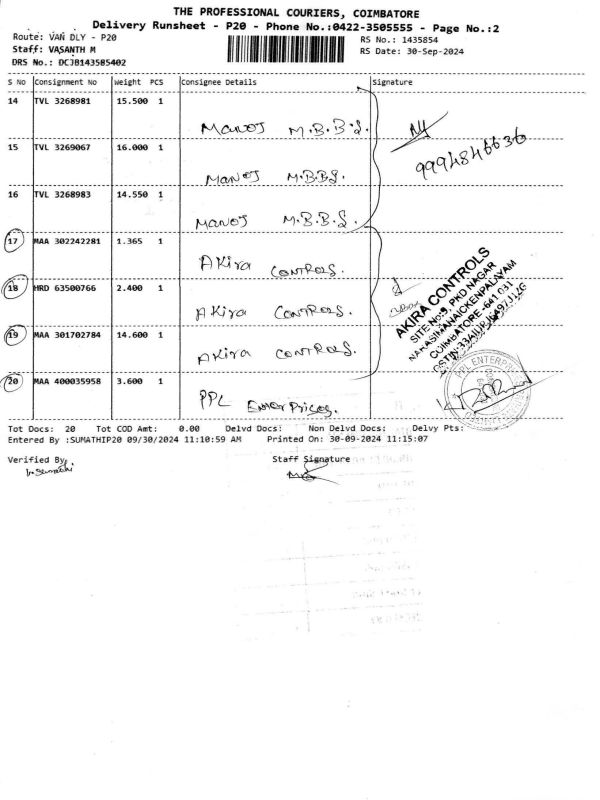 THE PROFESSIONAL COURIERS, COIMBATORE
Delivery Runsheet - P20 - Phone No.:0422-3505555 - Page No.:2
Route: VAN DLY - P20 RS No.: 1435854
Staff: VASANTH M RS Date: 30-Sep-2024
DRS No.: DCJB143585402
S No Consignment No Weight PCS Consignee Details Signature
14 TVL 3268981 15.500 1
MANOJ M.B.B.S.
15 TVL 3269067 16.000 1
9994846636
MANOJ M.B.B.S.
16 TVL 3268983 14.550 1
MANOJ M.B.B.S.
17 MAA 302242281 1.365 1
AKira CONTROLS.
18 HRD 63500766 2.400 1
AKira CONTROLS.
19 MAA 301702784 14.600 1
AKira CONTROLS.
AKIRA CONTROLS
SITE No:9, PKD NAGAR
NARASIMANAICKENPALAYAM
COIMBATORE-641 031
20 MAA 400035958 3.600 1
PPL EnterPrises.
PPL ENTERPRISES
Tot Docs: 20 Tot COD Amt: 0.00 Delvd Docs: Non Delvd Docs: Delvy Pts:
Entered By :SUMATHIP20 09/30/2024 11:10:59 AM Printed On: 30-09-2024 11:15:07
Verified By Staff Signature